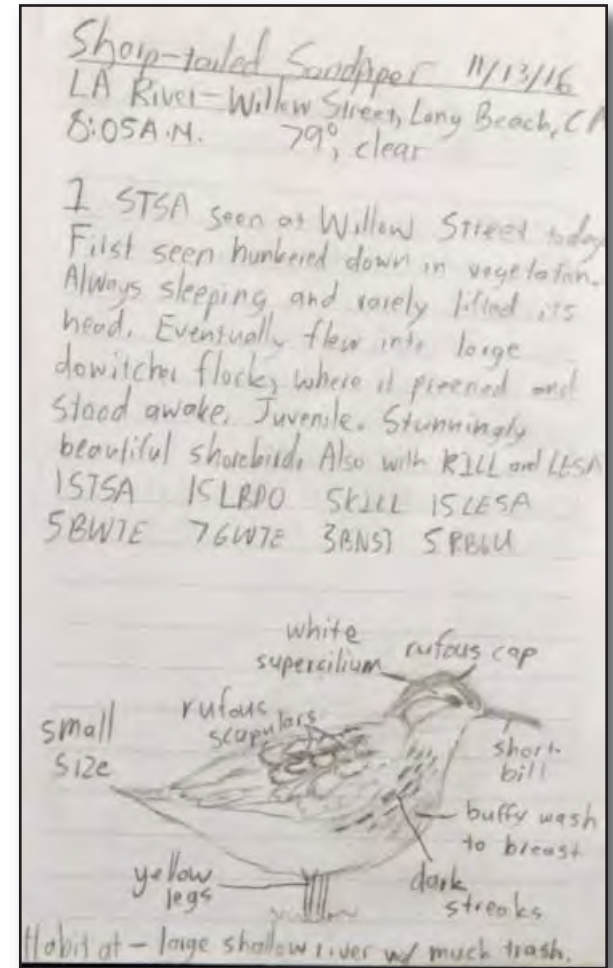 Sharp-tailed Sandpiper 11/13/16
LA River-Willow Street, Long Beach, CA
8:05A.M. 79°, clear
1 STSA seen at Willow Street today.
First seen hunkered down in vegetation.
Always sleeping and rarely lifted its
head. Eventually flew into large
dowitcher flock, where it preened and
stood awake. Juvenile. Stunningly
beautiful shorebird. Also with KILL and LESA
1STSA 15LBDO 5KILL 15LESA
5BWTE 7GWTE 3BNST 5RBGU
white
supercilium
rufous cap
rufous
scapulars
small
size
short
bill
buffy wash
to breast
yellow
legs
dark
streaks
Habitat - large shallow river w/ much trash.